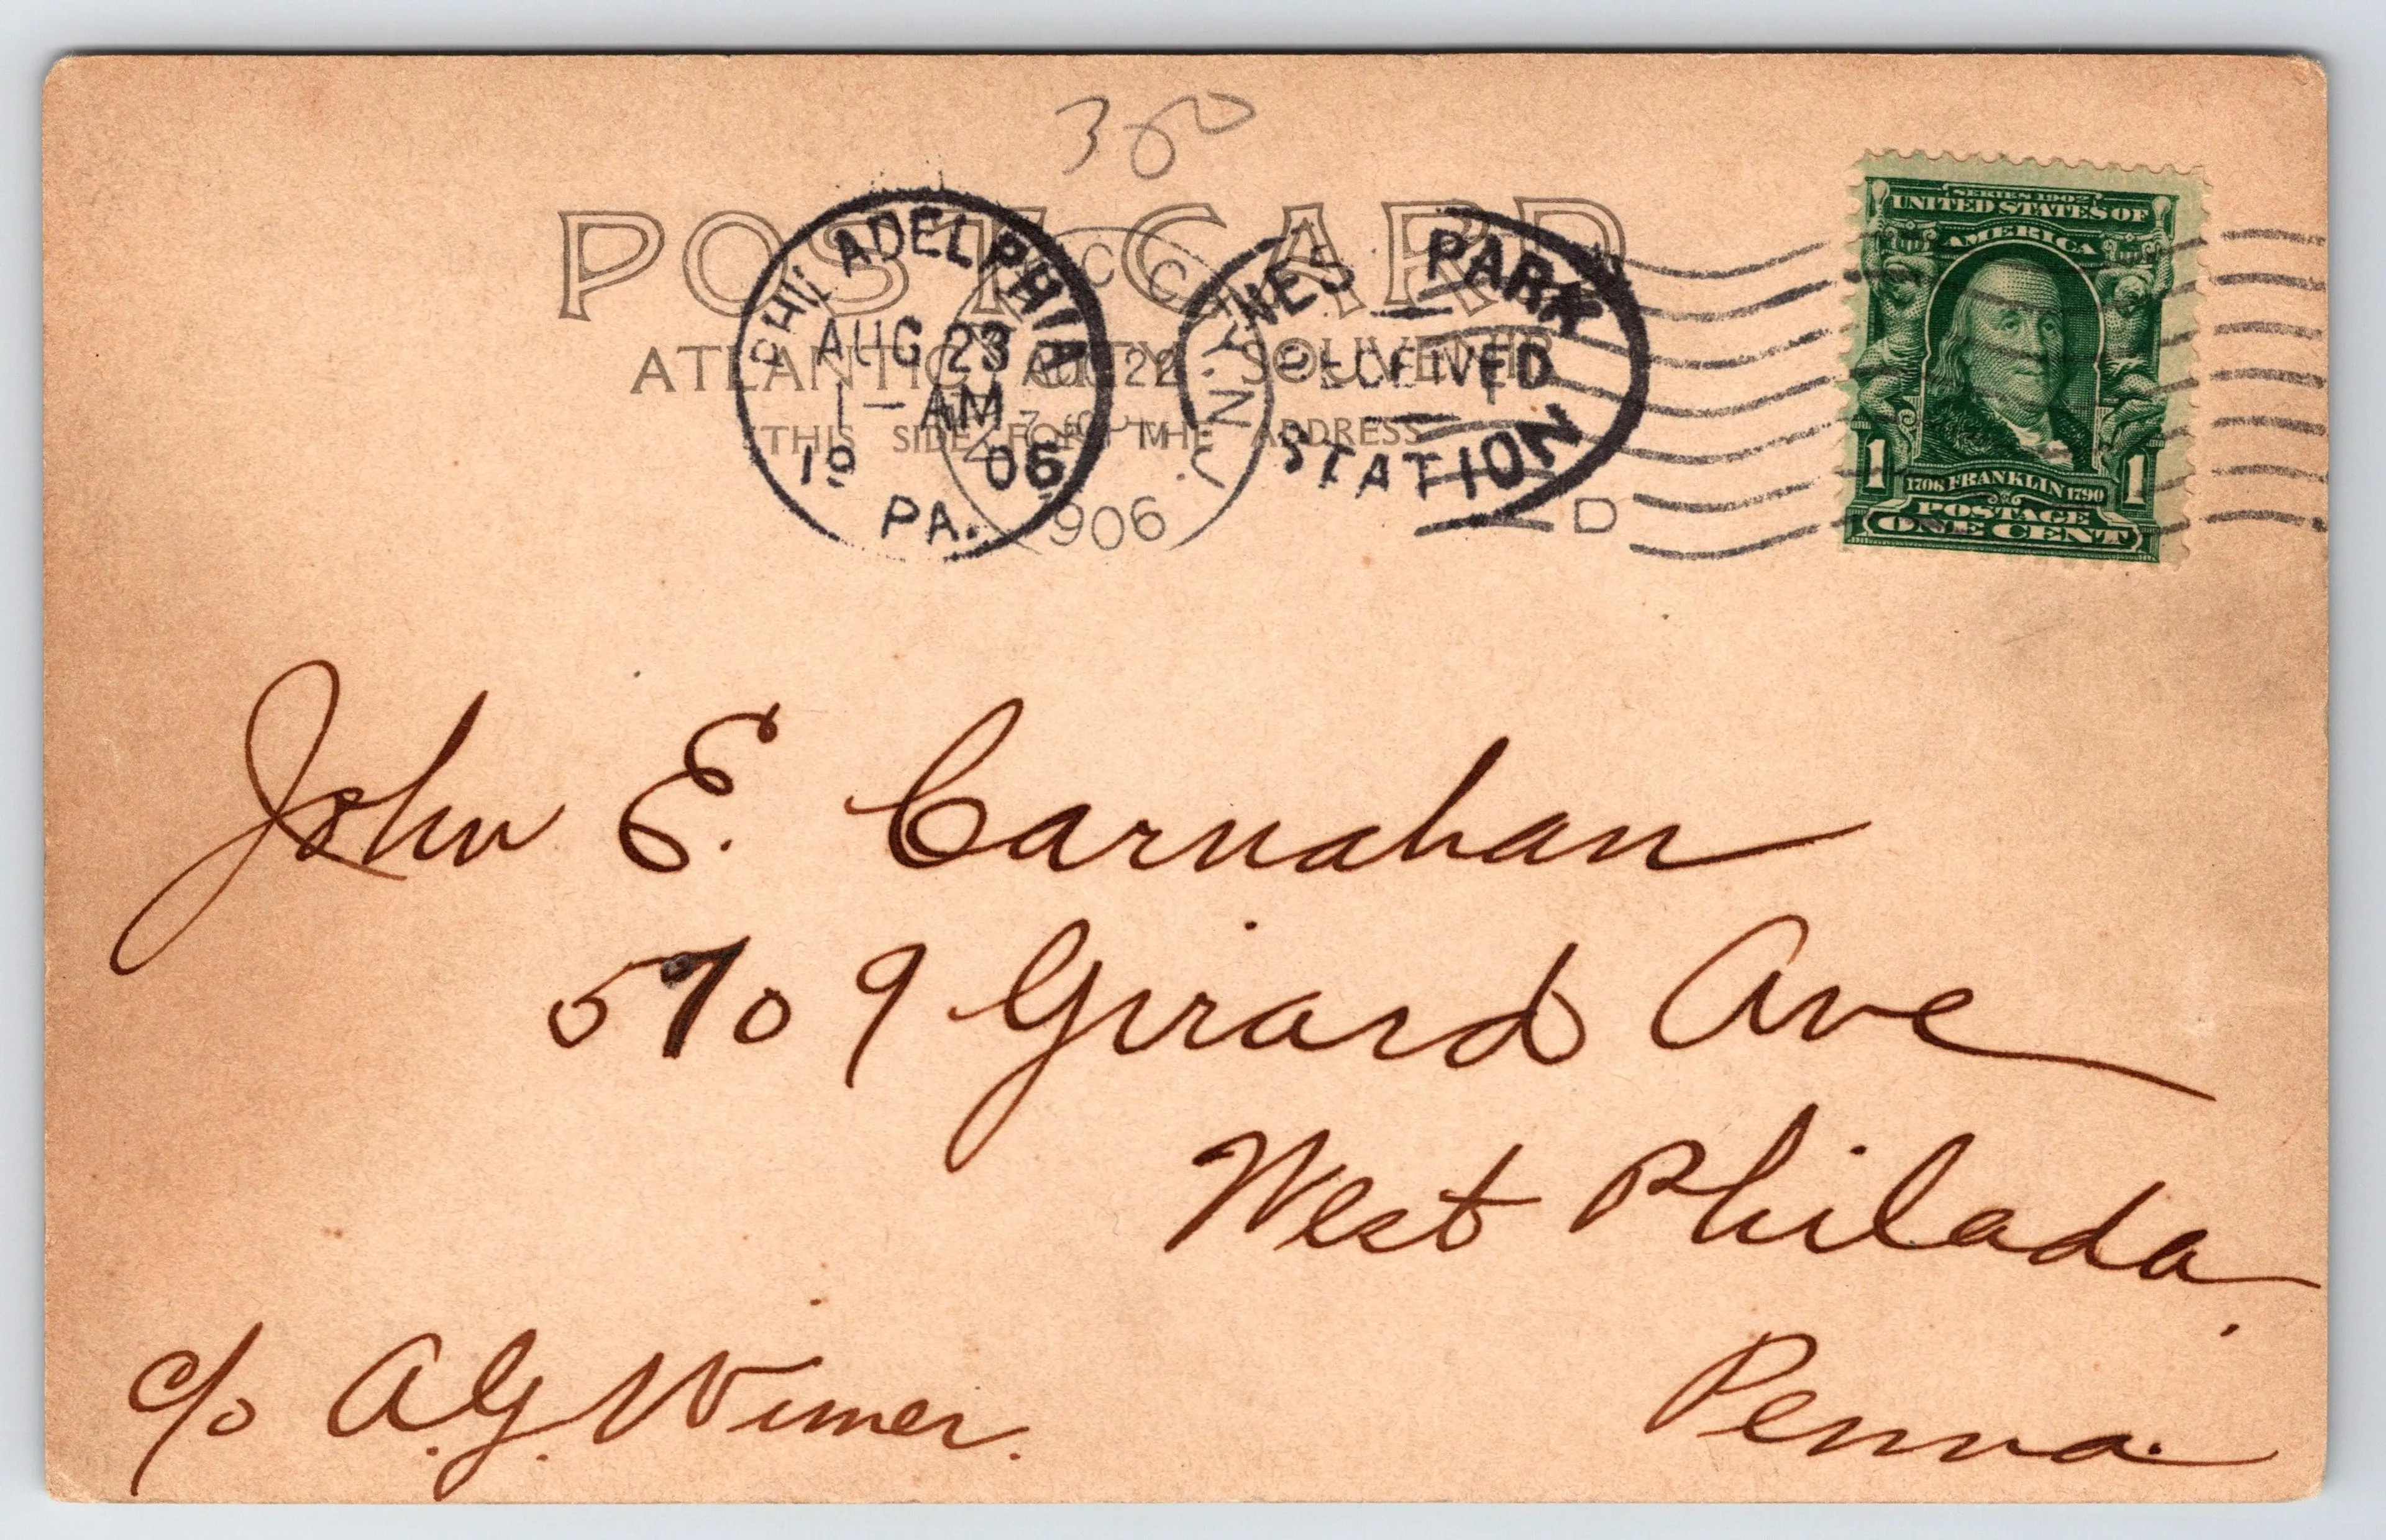 300
POST CARD
ATLANTIC CITY SOUVENIR
THIS SIDE FOR THE ADDRESS
PHILADELPHIA
AUG 23
1- AM
19 06
PA.
C CITY. N.J.
AUG 22
1906
WES PARK
RECEIVED
STATION
D
SERIES 1902
UNITED STATES OF
AMERICA
1 1706 FRANKLIN 1790 1
POSTAGE
ONE CENT
John E. Carnahan
5709 Girard Ave
West Philada.
Penna.
c/o A.G. Wimer.